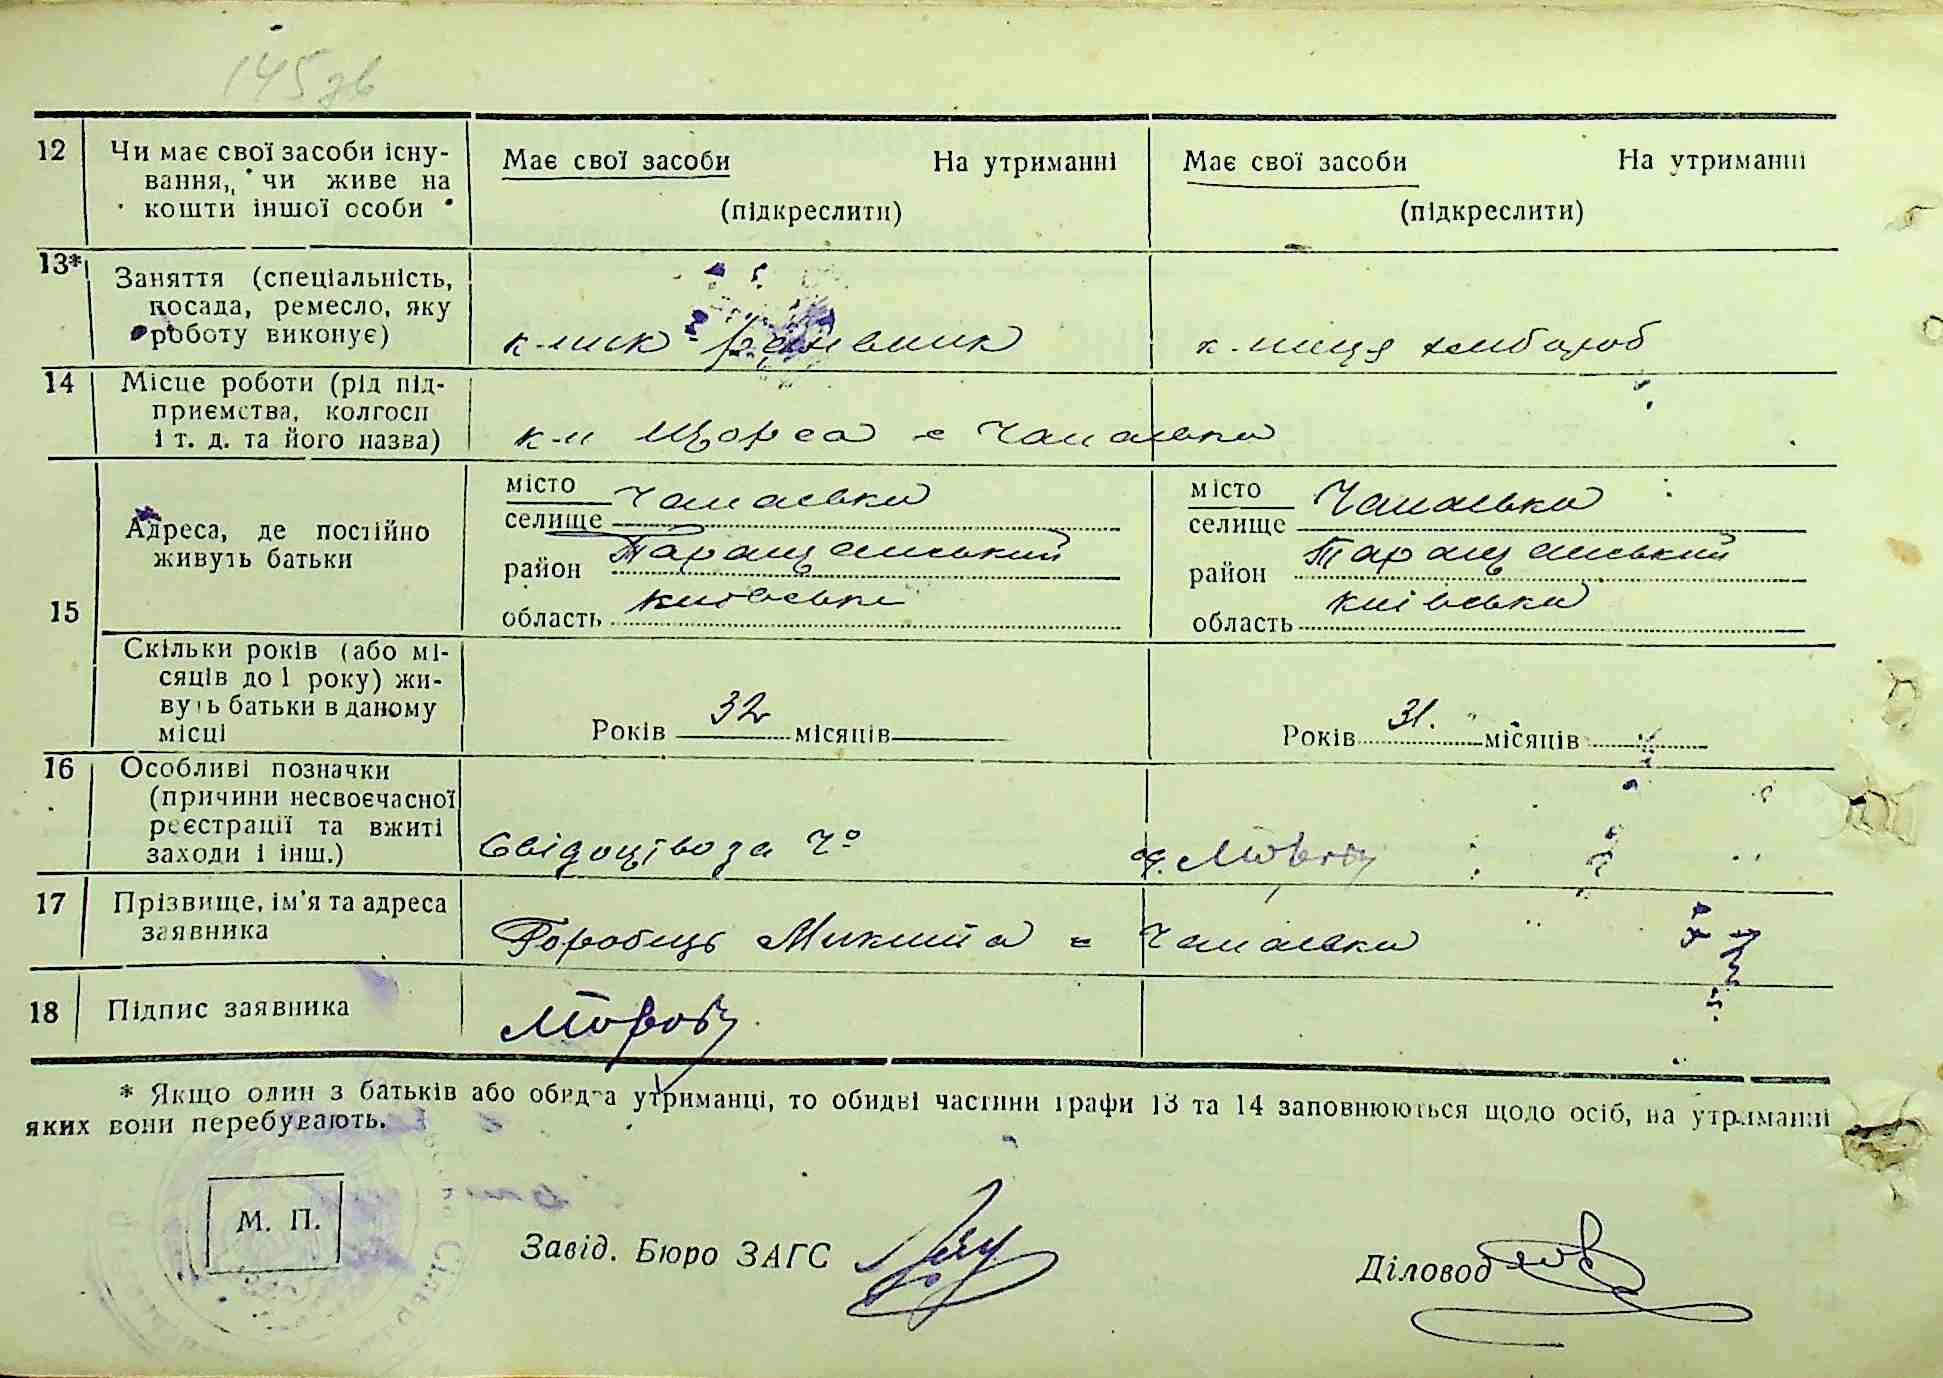 145 зв
12 Чи має свої засоби існу-
вання, чи живе на
кошти іншої особи
Має свої засоби На утриманні
(підкреслити)
Має свої засоби На утриманні
(підкреслити)
13* Заняття (спеціальність,
посада, ремесло, яку
роботу виконує)
к-ник
к-ниця хлібороб
14 Місце роботи (рід під-
приємства, колгосп
і т. д. та його назва)
к-п Щорса с Чапаєвка
15 Адреса, де постійно
живуть батьки
місто
селище Чапаєвка
район Таращанський
область Київська
місто
селище Чапаєвка
район Таращанський
область Київська
Скільки років (або мі-
сяців до 1 року) жи-
вуть батьки в даному
місці
Років 32 місяців
Років 31. місяців
16 Особливі позначки
(причини несвоєчасної
реєстрації та вжиті
заходи і інш.)
Свідоцтво за №
од.
17 Прізвище, ім'я та адреса
заявника
Горобець Микита с Чапаєвка
18 Підпис заявника
* Якщо один з батьків або обидва утриманці, то обидві частини графи 13 та 14 заповнюються щодо осіб, на утриманні
яких вони перебувають.
М. П.
Завід. Бюро ЗАГС
Діловод